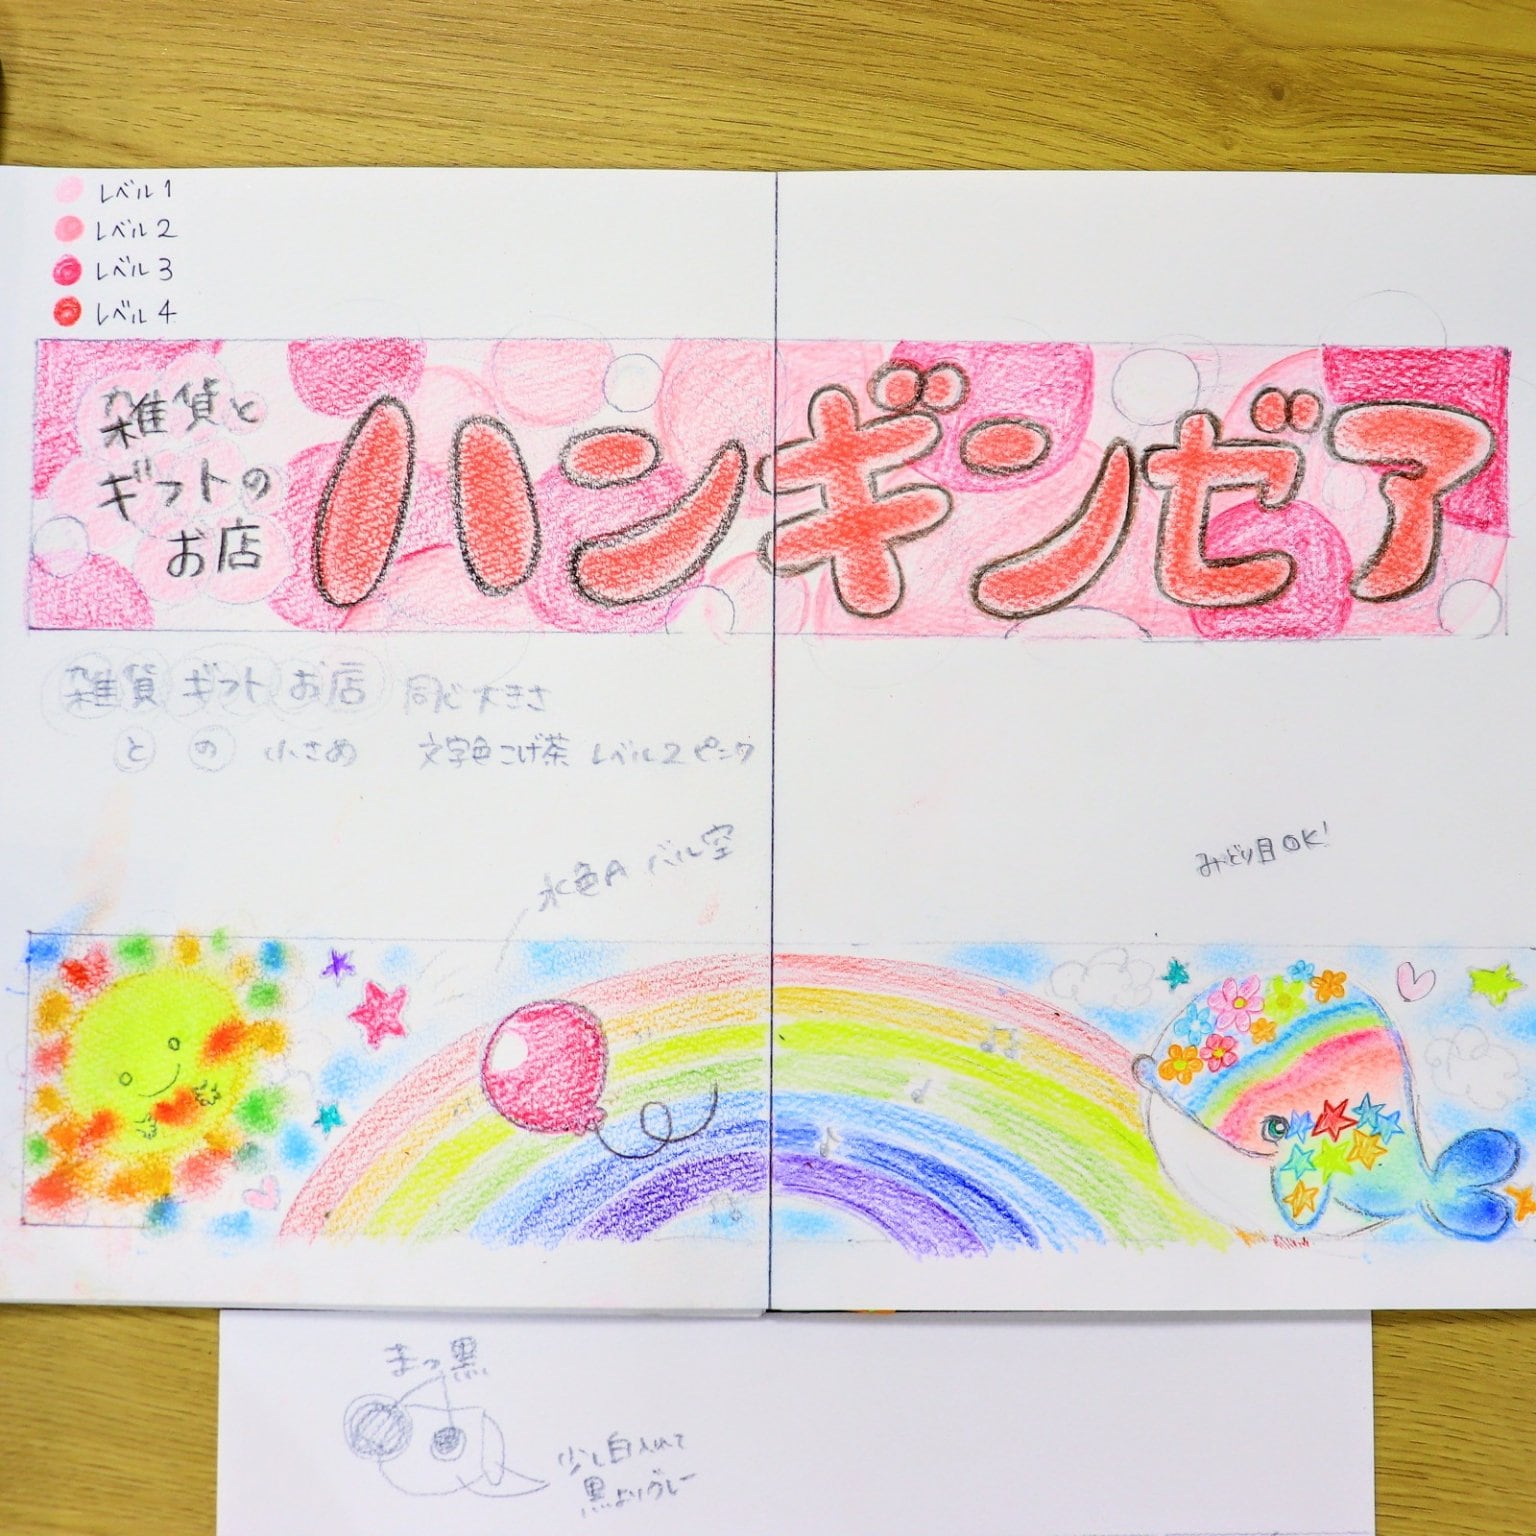 レベル1
レベル2
レベル3
レベル4
雑貨と
ギフトの
お店
ハンギンゼア
雑貨 ギフト お店 同じ大きさ
と の 小さめ 文字色こげ茶 レベル2ピンク
水色A バル空
みどり目OK!
まっ黒
少し白入れて
黒よりグレー